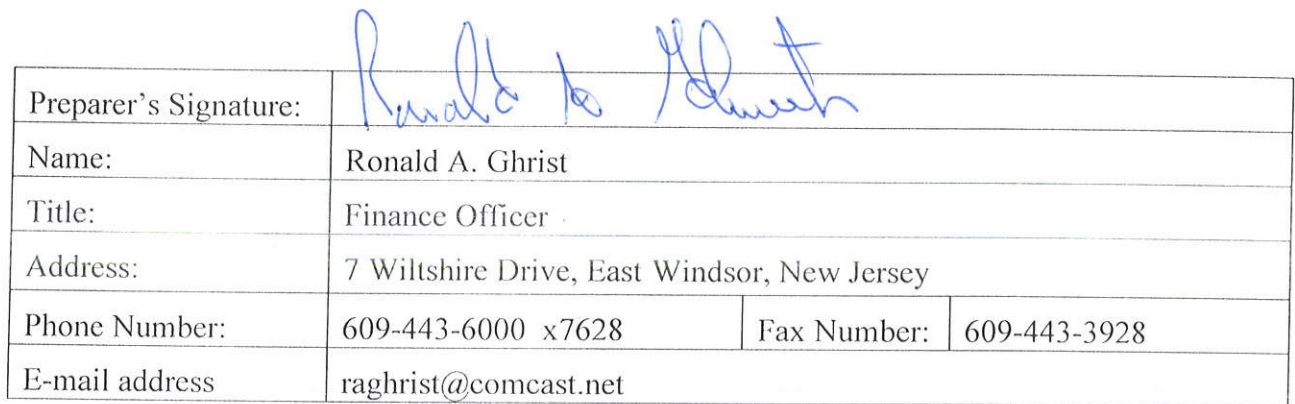 Preparer's Signature: Ronald A Ghrist
Name: Ronald A. Ghrist
Title: Finance Officer
Address: 7 Wiltshire Drive, East Windsor, New Jersey
Phone Number: 609-443-6000 x7628 Fax Number: 609-443-3928
E-mail address raghrist@comcast.net